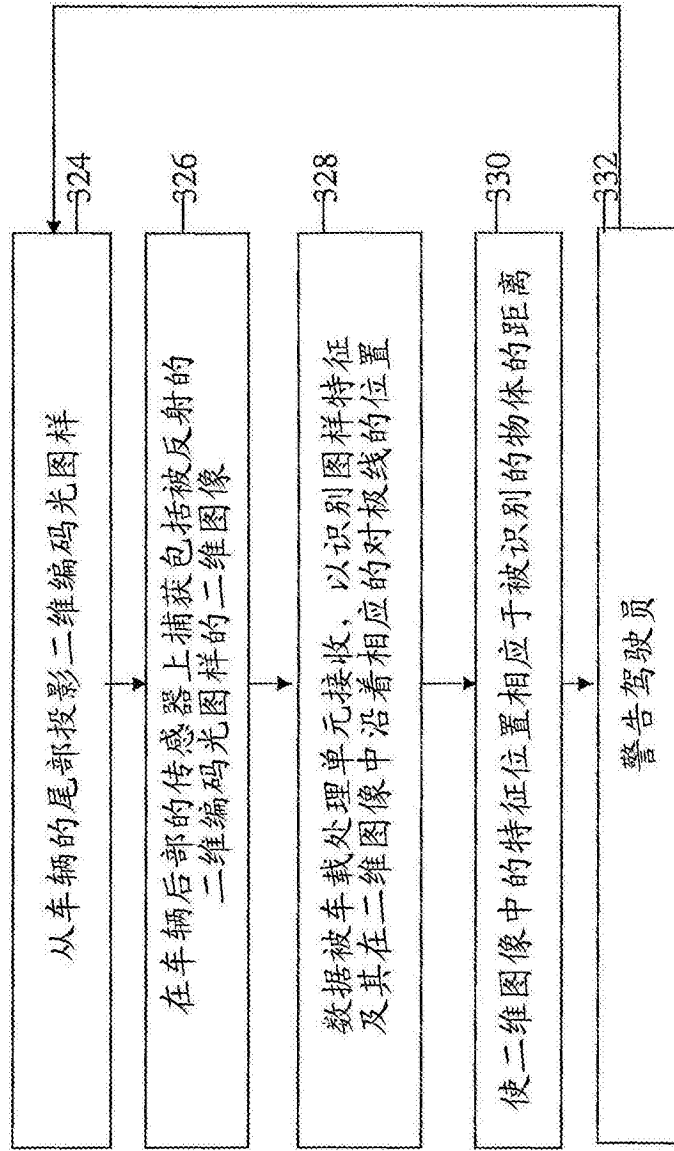 从车辆的尾部投影二维编码光图样
324
在车辆后部的传感器上捕获包括被反射的
二维编码光图样的二维图像
326
数据被车载处理单元接收，以识别图样特征
及其在二维图像中沿着相应的对极线的位置
328
使二维图像中的特征位置相应于被识别的物体的距离
330
警告驾驶员
332